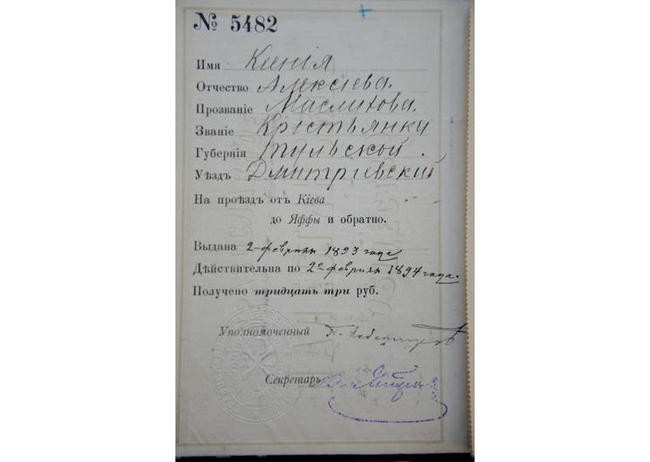 № 5482
Имя Ксенія
Отчество Алексіева.
Прозваніе Маслихова.
Званіе Крістьянки
Губернія Тульской.
Уѣздъ Дмитріевскій
На проѣздъ отъ Кіева
до Яффы и обратно.
Выдана 2-февраля 1893 года
Дѣйствительна по 2е февраля 1894 года.
Получено тридцать три руб.
Уполномоченный
Секретарь